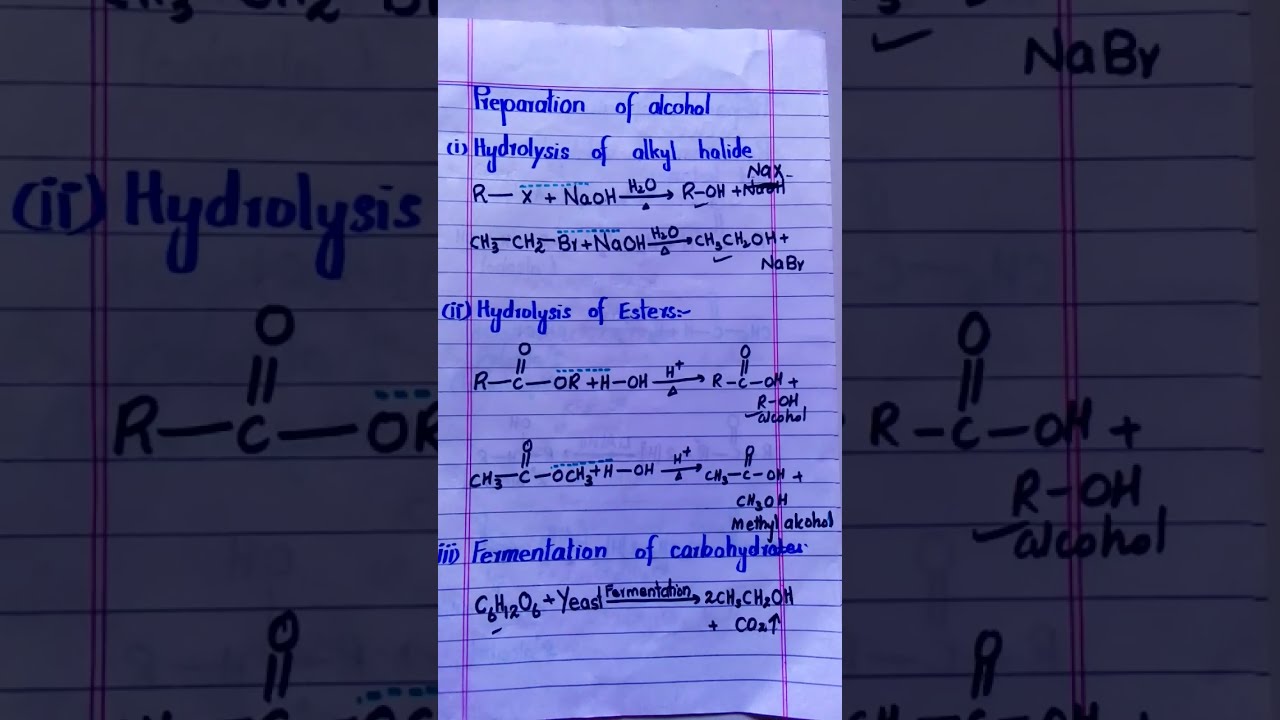 Preparation of alcohol
(i) Hydrolysis of alkyl halide
NaX
R— X + NaOH H₂O △ → R-OH + NaOH
CH₃-CH₂-Br+NaOH H₂O △ → CH₃CH₂OH+
NaBr
(ii) Hydrolysis of Esters:-
O O
R—C—OR +H-OH H⁺ △ → R-C-OH+
R-OH
alcohol
O O
CH₃-C-OCH₃+H-OH H⁺ △ → CH₃-C-OH +
CH₃OH
Methyl alcohol
iii) Fermentation of carbohydrates.
C₆H₁₂O₆ + Yeast Fermentation → 2CH₃CH₂OH
+ CO₂↑
(ii) Hydrolysis
O
R—C—OR
O
NaBr
O
R-C-OH +
R-OH
alcohol
O